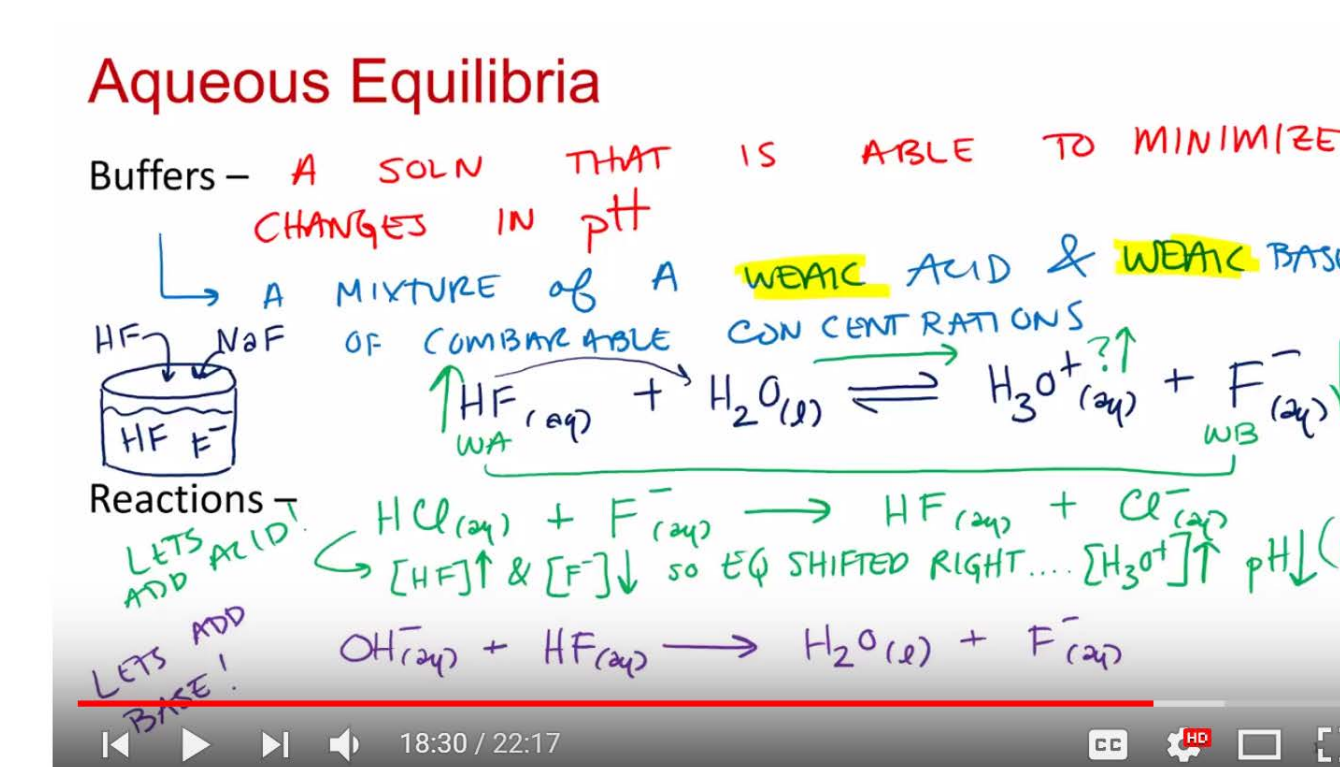 Aqueous Equilibria
Buffers – A SOLN THAT IS ABLE TO MINIMIZE
CHANGES IN pH
↳ A MIXTURE of A WEAK ACID & WEAK BASE
OF COMBARABLE CONCENTRATIONS
HF NaF
HF F⁻
↑HF(aq) + H₂O(l) ⇌ H₃O⁺(aq) ?↑ + F⁻(aq)
WA WB
Reactions –
LETS ADD ACID!
HCl(aq) + F⁻(aq) → HF(aq) + Cl⁻(aq)
↳ [HF]↑ & [F⁻]↓ SO EQ SHIFTED RIGHT.... [H₃O⁺]↑ pH↓ (
LETS ADD BASE!
OH⁻(aq) + HF(aq) → H₂O(l) + F⁻(aq)
18:30 / 22:17
CC HD